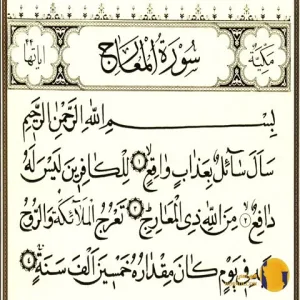 مكية سورة المعارج آياتها ٤٤
بِسْمِ اللَّهِ الرَّحْمَٰنِ الرَّحِيمِ
سَأَلَ سَائِلٌ بِعَذَابٍ وَاقِعٍ ۝١ لِلْكَافِرِينَ لَيْسَ لَهُ
دَافِعٌ ۝٢ مِنَ اللَّهِ ذِي الْمَعَارِجِ ۝٣ تَعْرُجُ الْمَلَائِكَةُ وَالرُّوحُ
إِلَيْهِ فِي يَوْمٍ كَانَ مِقْدَارُهُ خَمْسِينَ أَلْفَ سَنَةٍ ۝٤